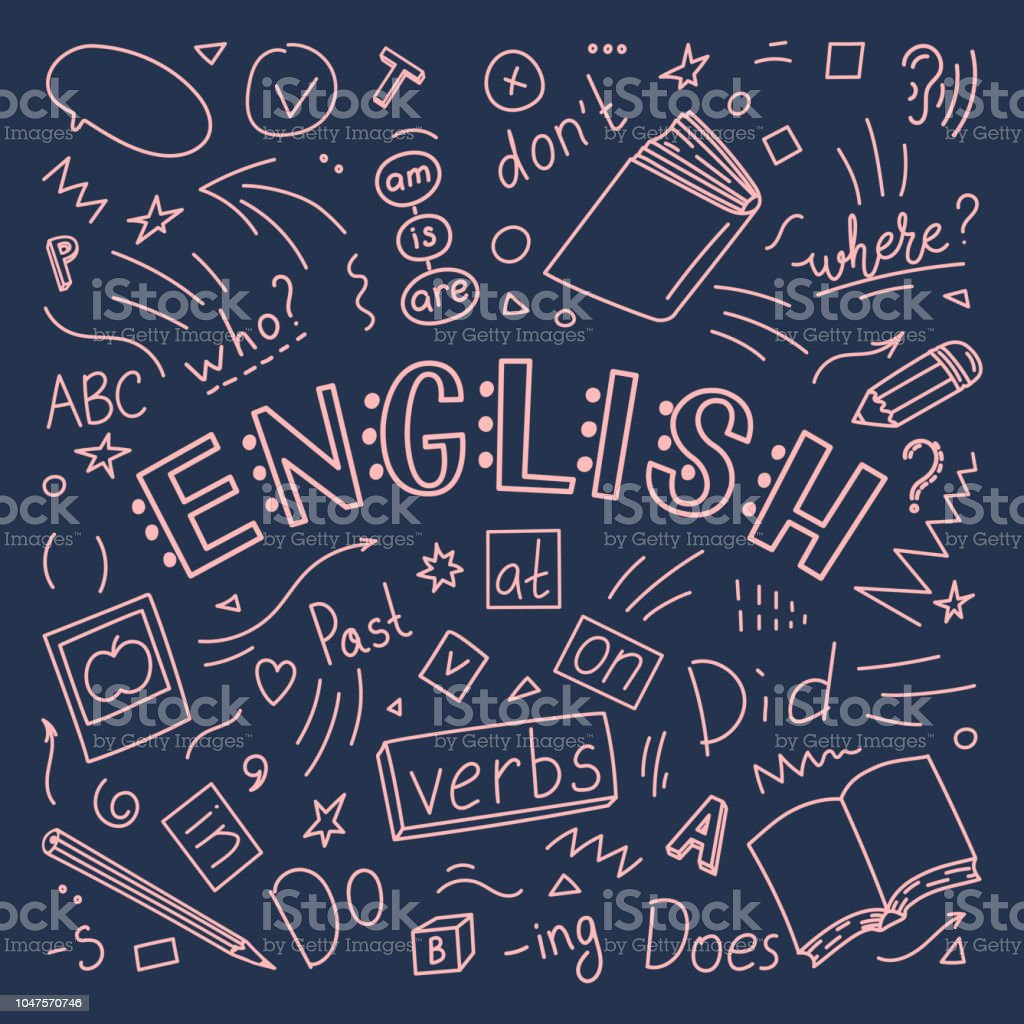 T
don't
am
is
are
P
who?
where?
ABC
ENGLISH
?
at
Past
v
on
Did
verbs
in
A
Do
B
-s
-ing
Does
iStock
by Getty Images™
1047570746